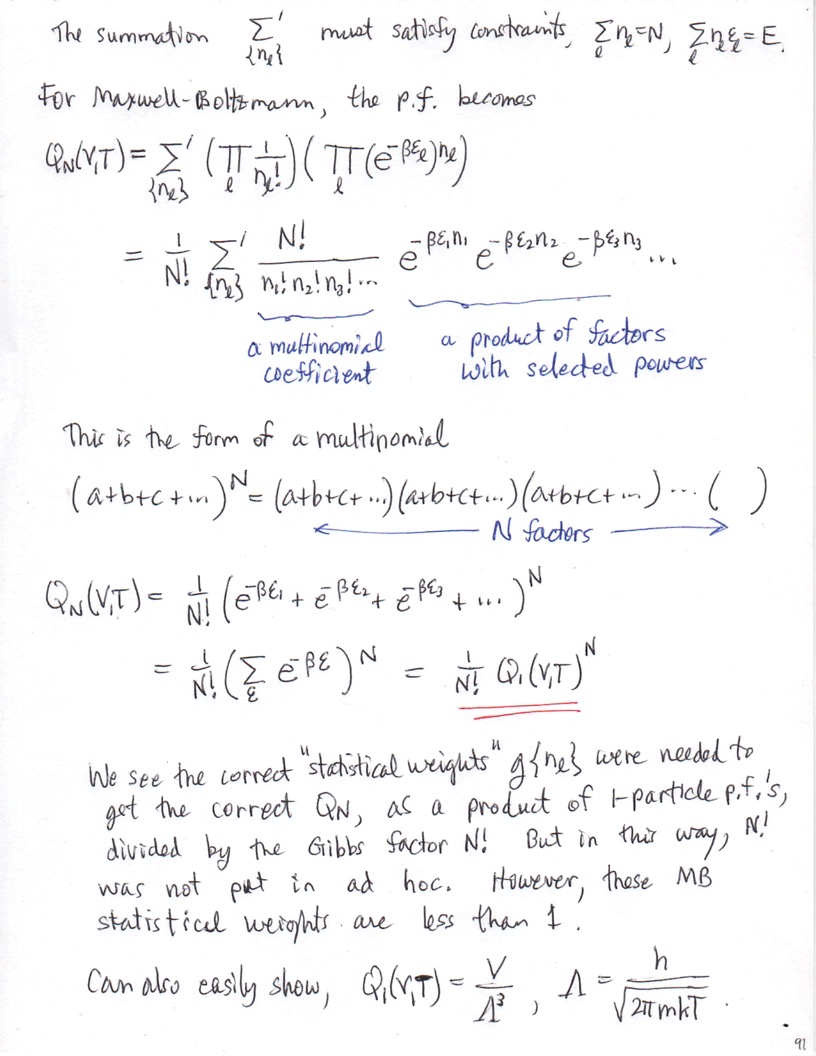 The summation Σ'_{nℓ} must satisfy constraints, Σ_ℓ nℓ = N, Σ_ℓ nℓεℓ = E.
For Maxwell-Boltzmann, the p.f. becomes
Q_N(V,T) = Σ'_{nℓ} (∏_ℓ 1/nℓ!)(∏_ℓ (e^{-βεℓ})^{nℓ})
= 1/N! Σ'_{nℓ} N!/(n₁! n₂! n₃! ⋯) e^{-βε₁n₁} e^{-βε₂n₂} e^{-βε₃n₃} ...
a multinomial coefficient
a product of factors with selected powers
This is the form of a multinomial
(a+b+c+...)^N = (a+b+c+...)(a+b+c+...)(a+b+c+...) ... ( )
N factors
Q_N(V,T) = 1/N! (e^{-βε₁} + e^{-βε₂} + e^{-βε₃} + ...)^N
= 1/N! (Σ_ε e^{-βε})^N = 1/N! Q₁(V,T)^N
We see the correct "statistical weights" g{nℓ} were needed to
get the correct Q_N, as a product of 1-particle p.f.'s,
divided by the Gibbs factor N! But in this way, N!
was not put in ad hoc. However, these MB
statistical weights are less than 1.
Can also easily show, Q₁(V,T) = V/Λ³, Λ = h/√(2πmkT).
91